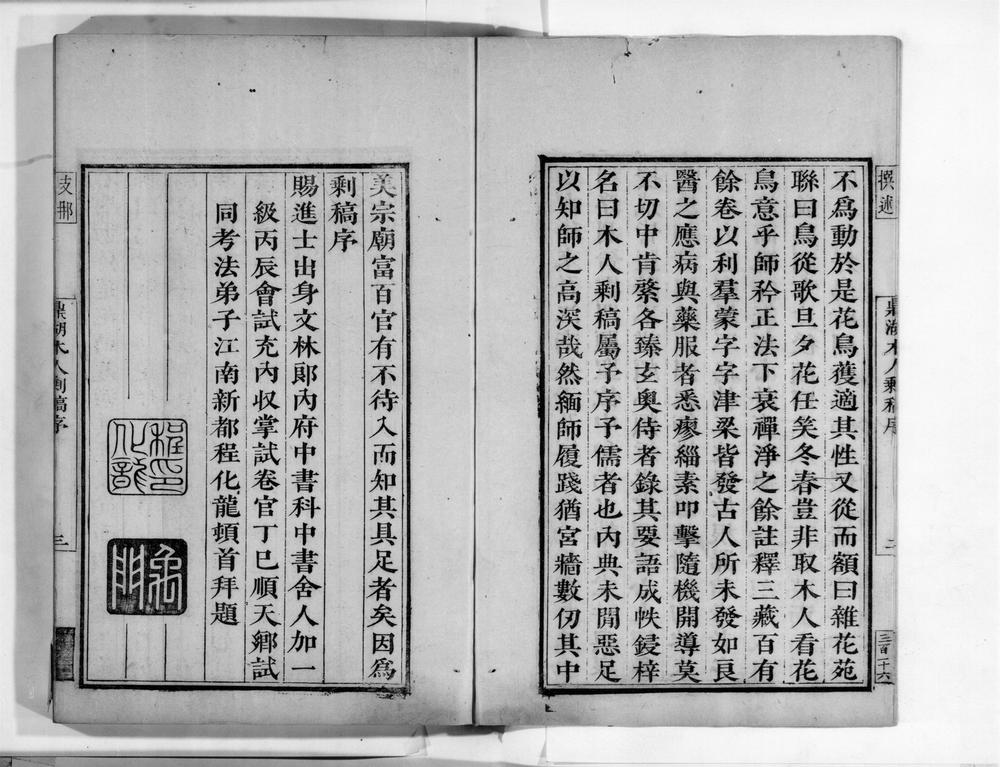 撰述
鼎湖木人剩稿序
二
三百二十六
不爲動於是花鳥獲適其性又從而額曰雜花苑
聯曰鳥從歌旦夕花任笑冬春豈非取木人看花
鳥意乎師矜正法下衰禪淨之餘註釋三藏百有
餘卷以利羣蒙字字津梁皆發古人所未發如良
醫之應病與藥服者悉瘳緇素叩擊隨機開導莫
不切中肯綮各臻玄奧侍者錄其要語成帙鋟梓
名曰木人剩稿屬予序予儒者也內典未閒惡足
以知師之高深哉然緬師履踐猶宮牆數仞其中
美宗廟富百官有不待入而知其具足者矣因爲
剩稿序
賜進士出身文林郎內府中書科中書舍人加一
級丙辰會試充內收掌試卷官丁巳順天鄉試
同考法弟子江南新都程化龍頓首拜題
程化龍印
支那
鼎湖木人剩稿序
三